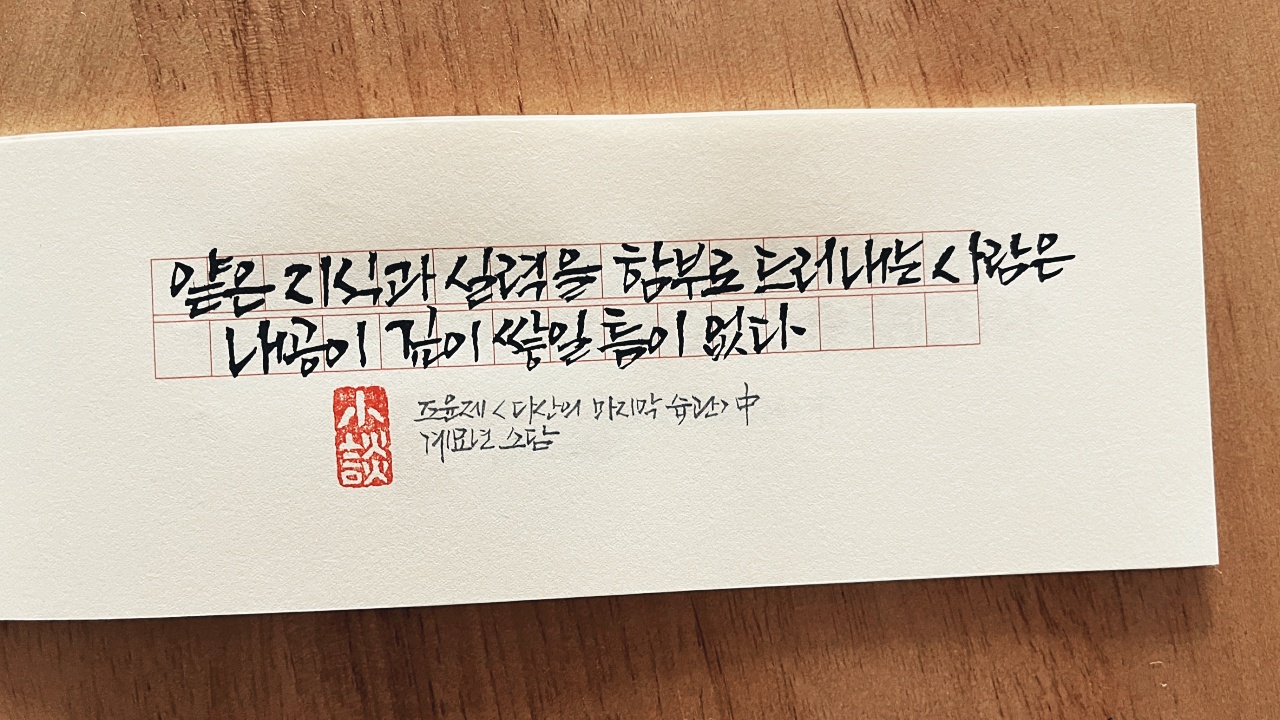 얕은 지식과 실력을 함부로 드러내는 사람은
내공이 깊이 쌓일 틈이 없다.
조윤제 <다산의 마지막 습관> 中
계묘년 소담
小談